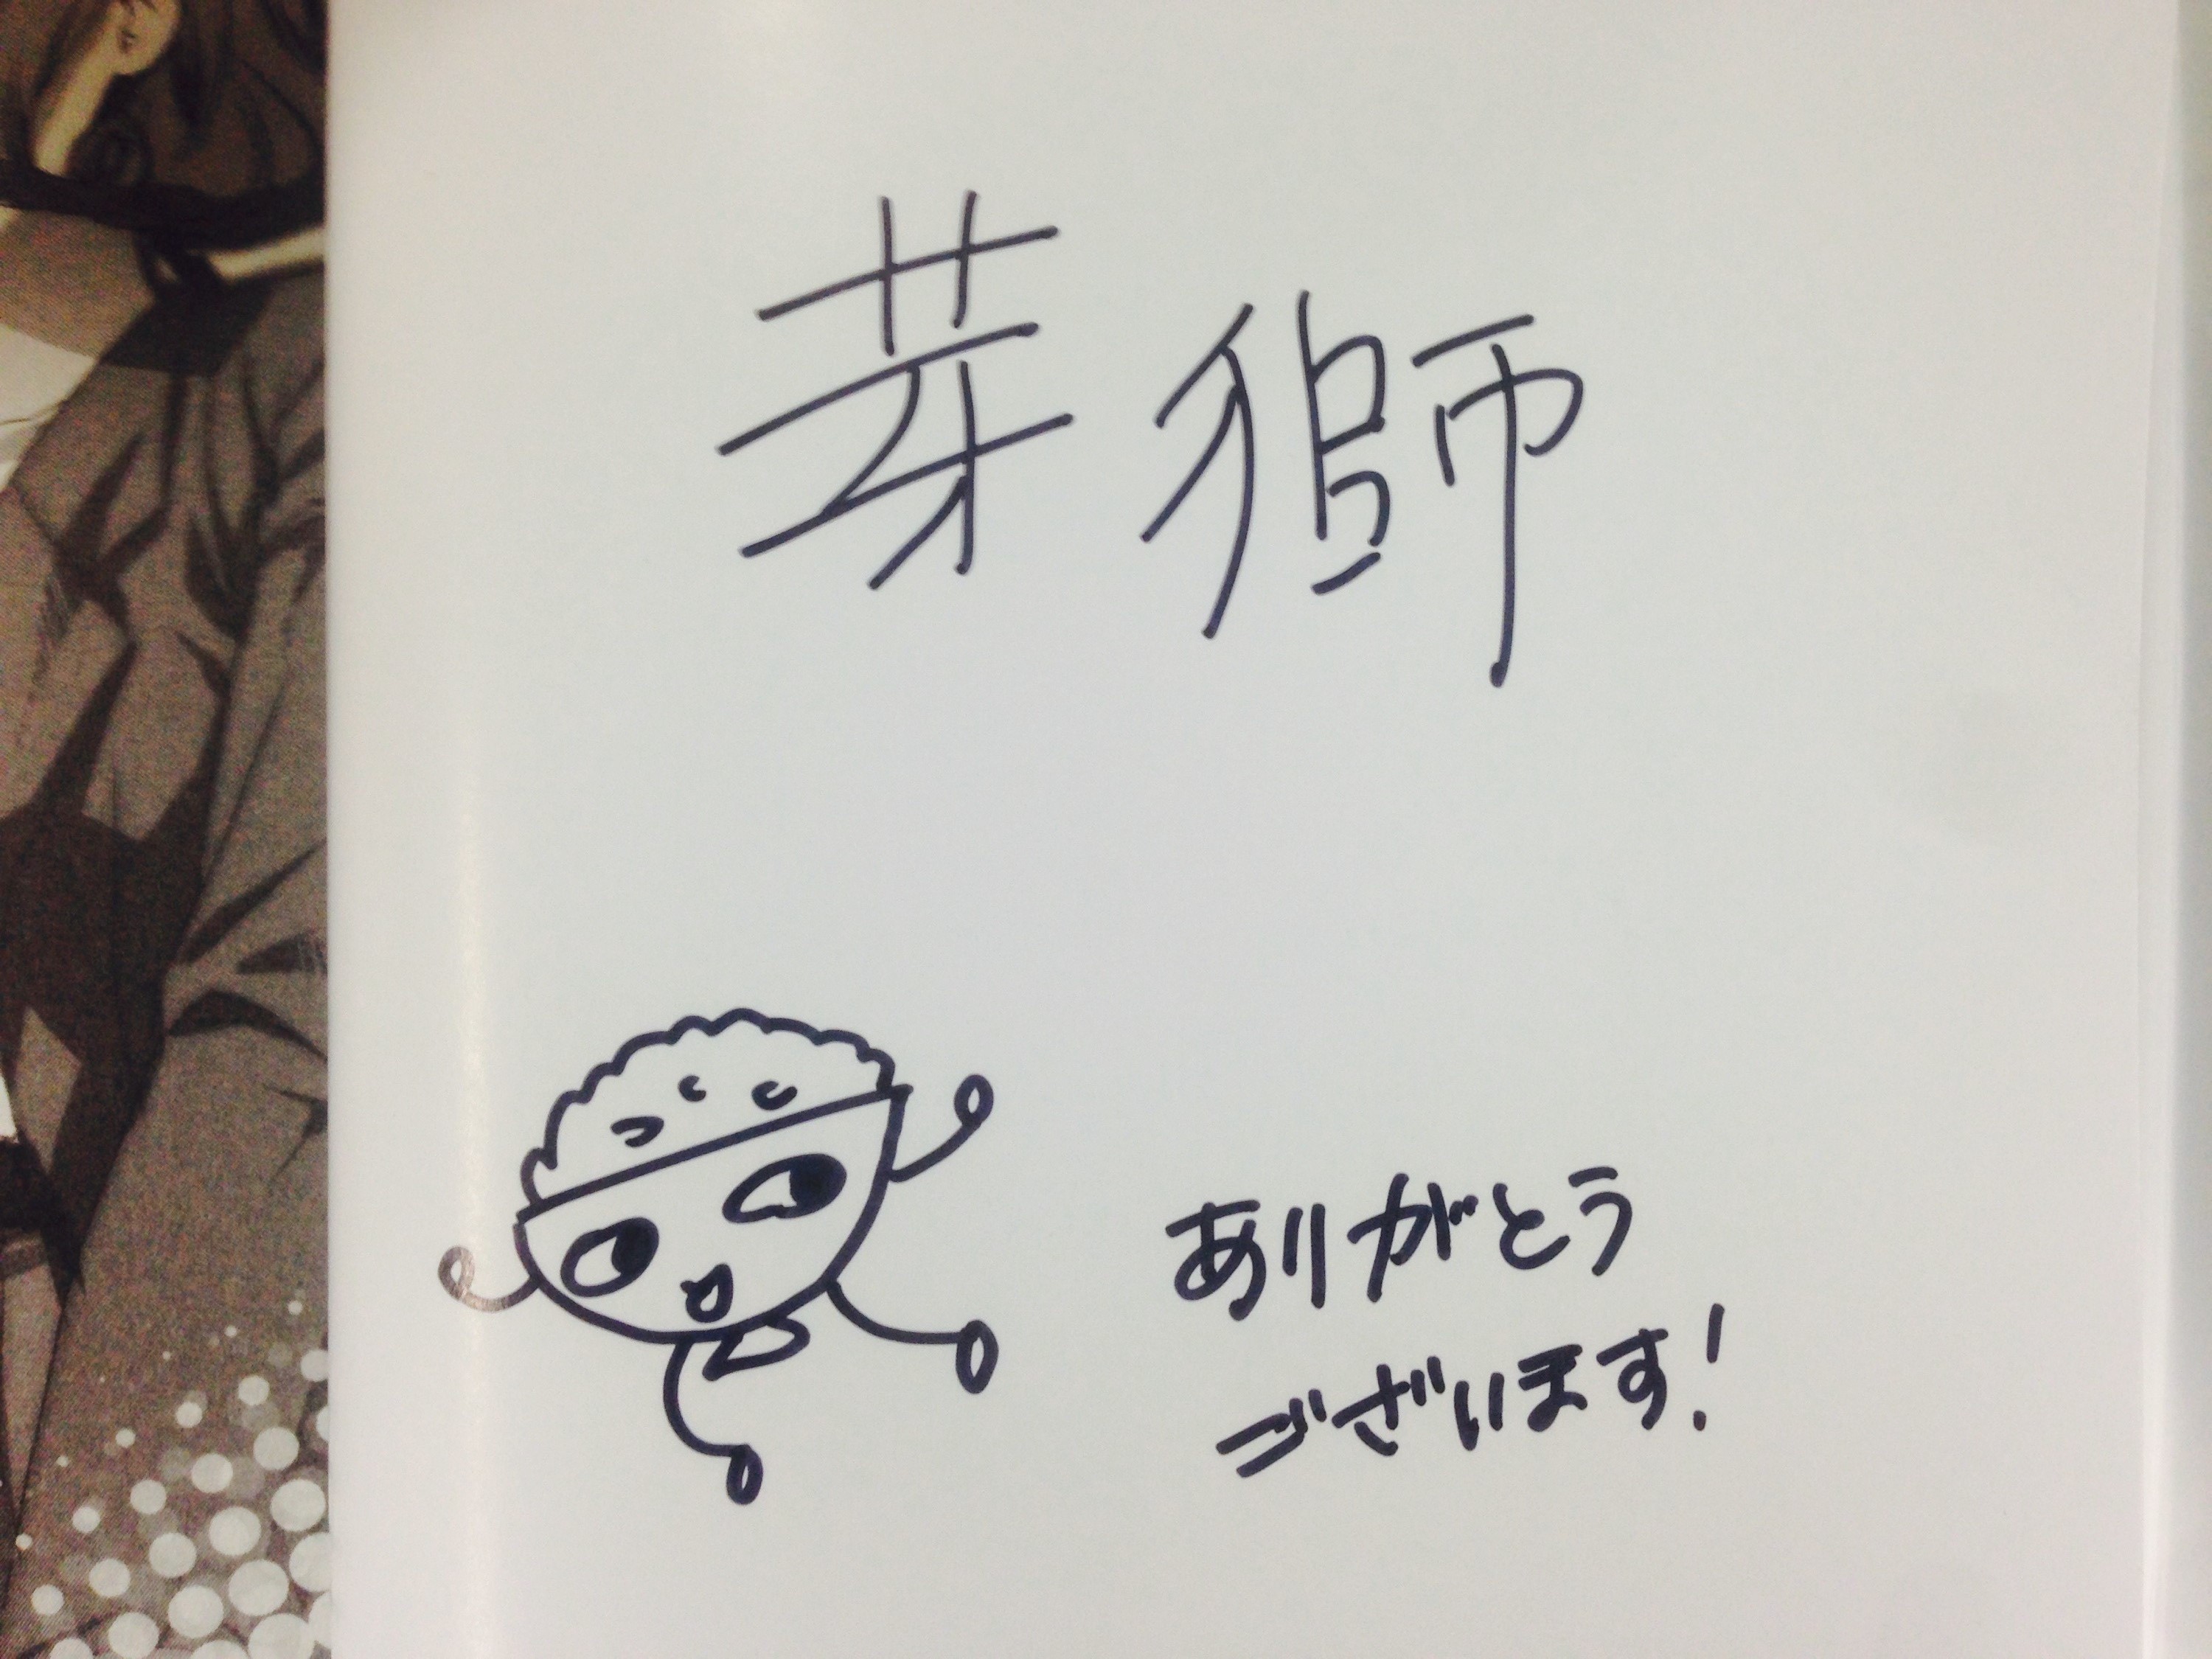 芽獅
ありがとう
ございます!